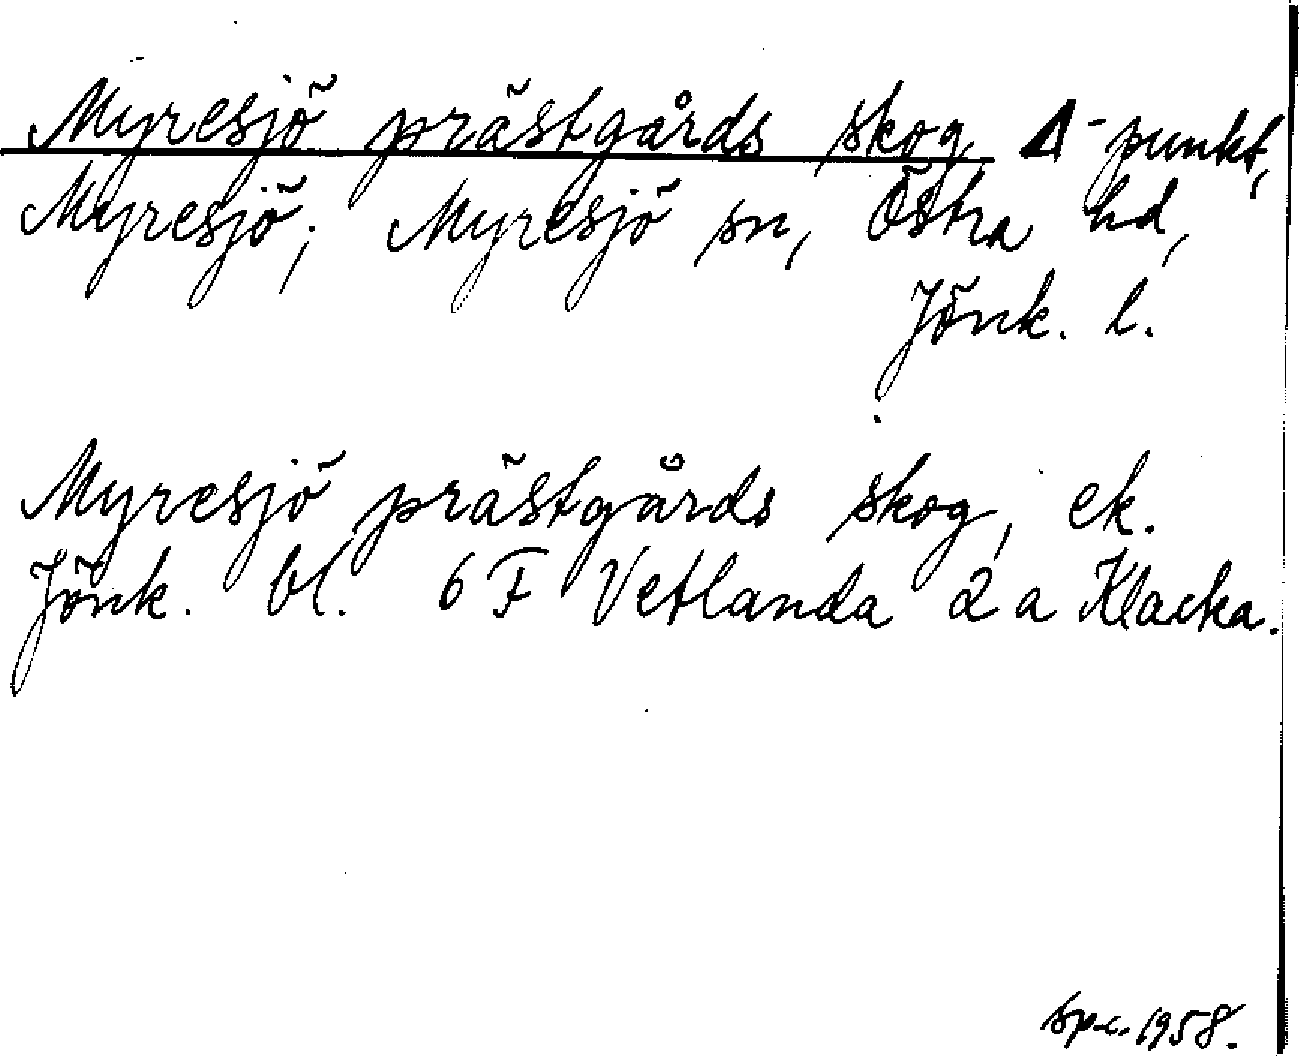 Myresjö prästgårds skog Δ-punkt,
Myresjö; Myresjö sn, Östra hd,
Jönk. l.
Myresjö prästgårds skog, ek.
Jönk. bl. 6 F Vetlanda 2 a Klacka.
sp.c. 1958.